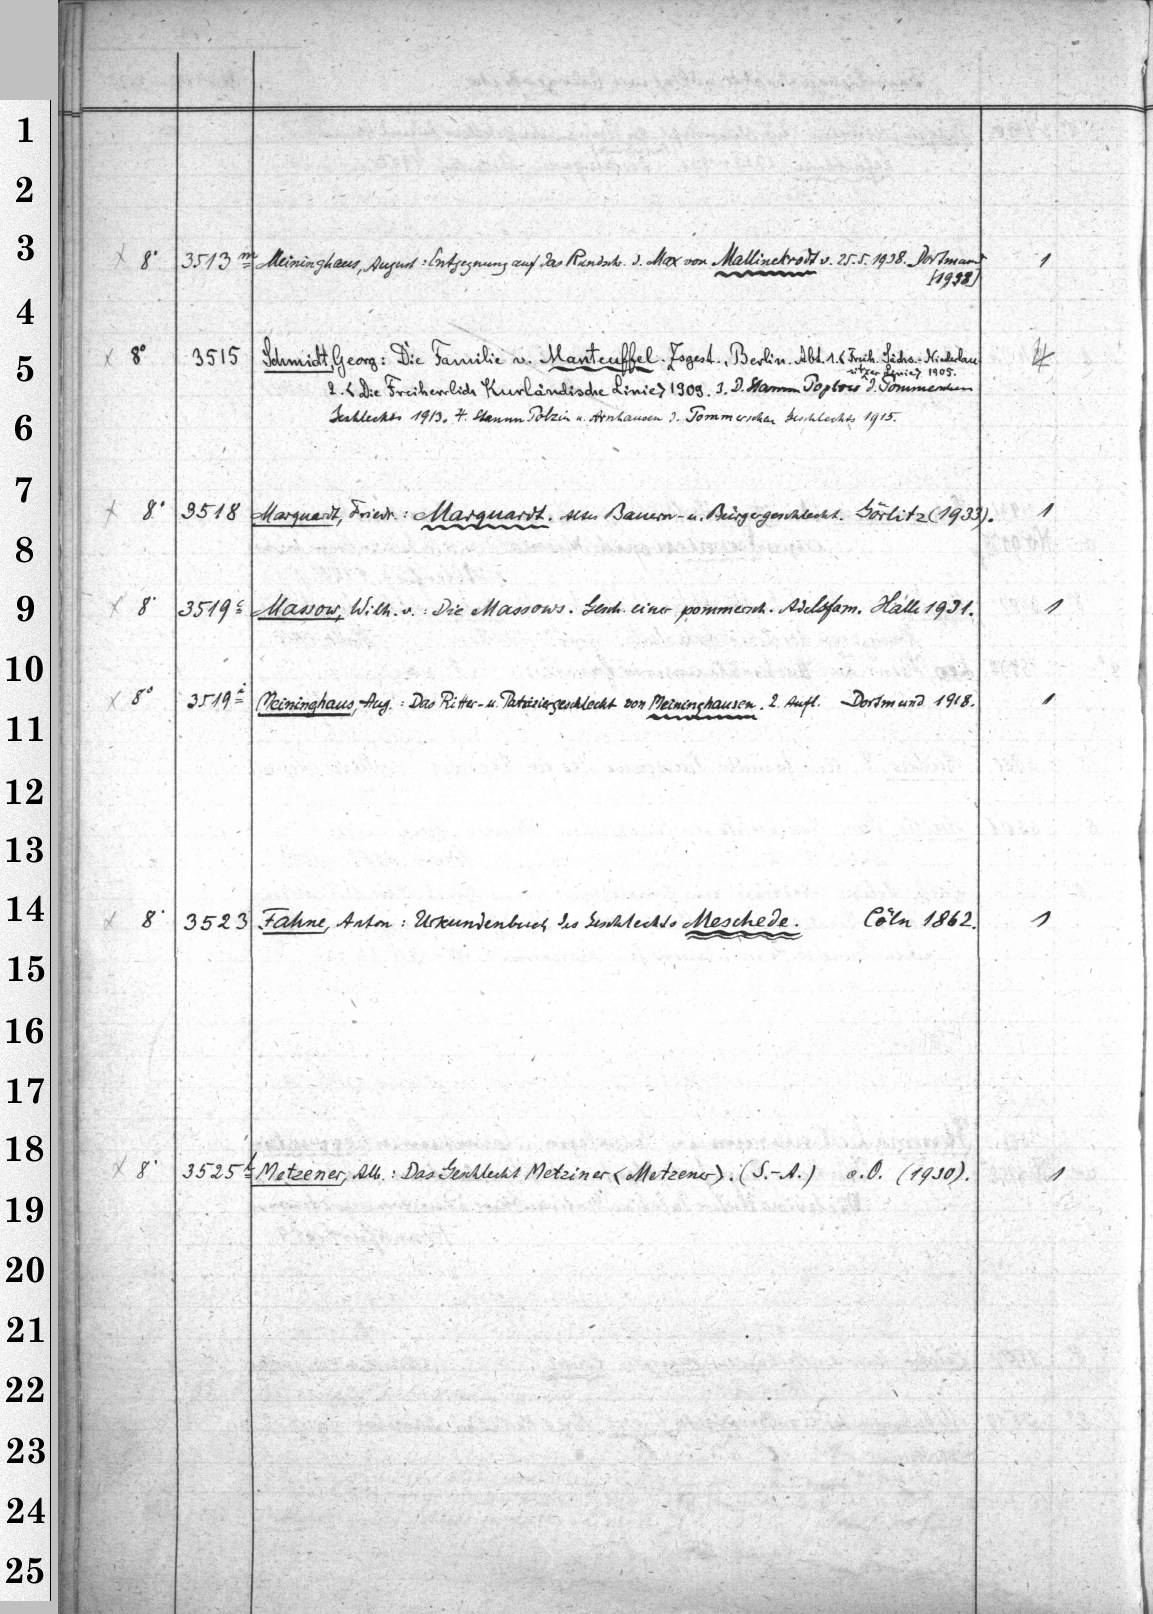 1
2
3
x 8° 3513 m Meininghaus, August: Entgegnung auf das Rundschr. d. Max von Mallinckrodt v. 25.5.1938. Dortmund 1
[1938]
4
x 8° 3515 Schmidt, Georg: Die Familie v. Manteuffel. Zsgest., Berlin. Abt. 1. <Freih. Sächs.-Niederlau- 4
5
sitzer Linie> 1905.
2. <Die Freiherrlich Kurländische Linie> 1909. 3. D. Stamm Poplow d. Pommerschen
6
Geschlechts 1913. 4. Stamm Polzin u. Arnhausen d. Pommerschen Geschlechts 1915.
7
x 8° 3518 Marquardt, Friedr.: Marquardt. Altes Bauern- u. Bürgergeschlecht. Görlitz (1933). 1
8
9
x 8° 3519 c Massow, Wilh. v.: Die Massows. Gesch. einer pommersch. Adelsfam. Halle 1931. 1
10
x 8° 3519 i Meininghaus, Aug.: Das Ritter- u. Patriziergeschlecht von Meininghausen. 2. Aufl. Dortmund 1918. 1
11
12
13
14
x 8° 3523 Fahne, Anton: Urkundenbuch des Geschlechts Meschede. Cöln 1862. 1
15
16
17
18
x 8° 3525 Metzener, Alb.: Das Geschlecht Metziner <Metzener>. (S.-A.) o.O. (1930). 1
19
20
21
22
23
24
25